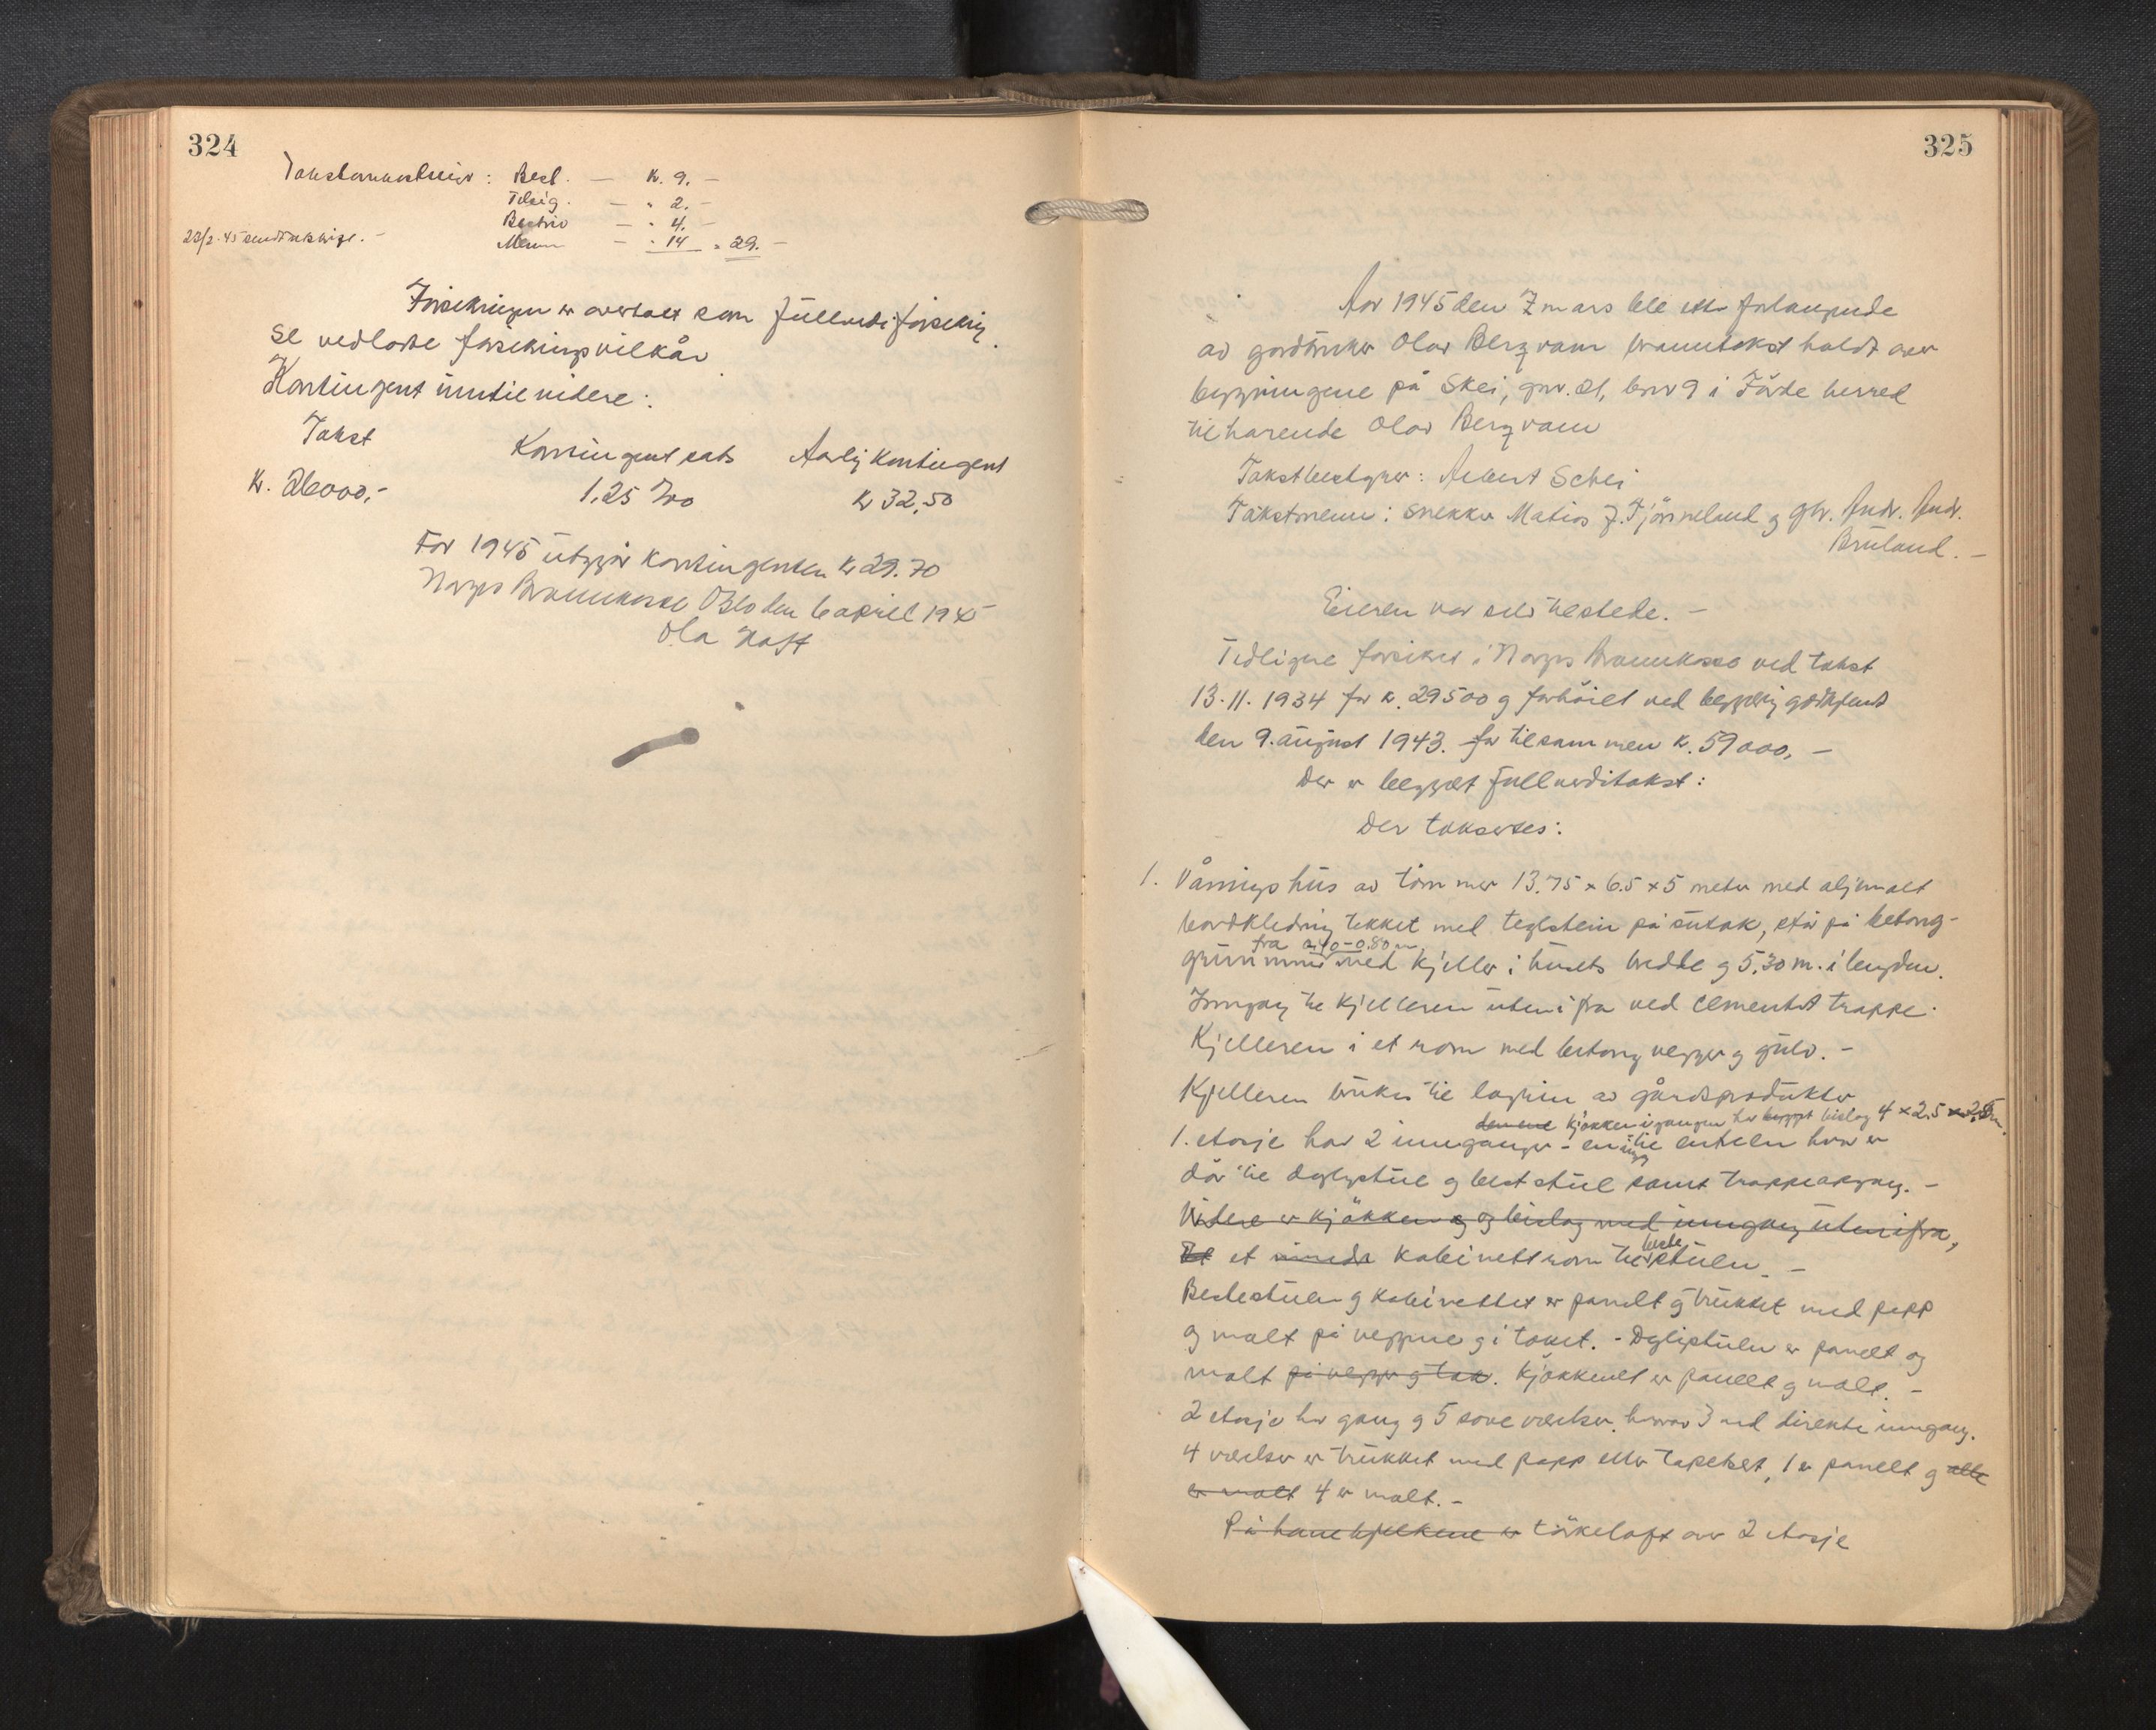 324
Takstomkostninger: Best. — k. 9. —
Tilsig. — " 2. —
— " 4. —
23/2-45 sendt utskrift. —
Menn — " 14 = 29. —
Forsikringen er overtatt som fullverdiforsikring.
Se vedlagte forsikringsvilkår
Kontingent inntil videre:
Takst Kontingentsats Aarlig kontingent
Kr. 26000,- 1,25 ‰ kr 32,50
For 1945 utgjør kontingenten kr 29.70
Norges Brannkasse Oslo den 6 april 1945
Ola
325
Aar 1945 den 7 mars ble etter forlangende
av gardbruker Olav Bergvam branntakst holdt over
bygningene på Skei, gnr. 21, bnr 9 i Förde herred
tilhørende Olav Bergvam
Takstbestyrer: Albert Schei
Takstmenn: snekker Matias J. Fjörneland og gbr. Andr. Andr.
Bruland. —
Eieren var selv tilstede. —
Tidligere forsikret i Norges Brannkasse ved takst
13.11.1934 for kr. 29500 og forhöiet ved begjæring godkjent
den 9. august 1943. for tilsammen kr. 59000, —
Der er begjært fullverditakst:
Der takseres:
1. Våningshus av tömmer 13.75 x 6.5 x 5 meter med oljemalt
bordkledning tekket med teglstein på sutak, står på betong-
fra 0.40-0.80 m
grunnmur med kjeller i husets bredde og 5.30 m. i lengden.
Inngang til kjelleren uteni fra ved cementert trappe.
Kjelleren i et rom med betong vegger og gulv. —
Kjelleren brukes til lagring av gårdsprodukter
den ene kjökkeninngangen har bygget bislag 4 x 2.5 x 2,5 m.
1. etasje har 2 innganger - en til entreen hvor er
dör til daglystue og beststue samt trappeopgang. —
Videre er kjökken og og bislag med inngang utenifra,
et kabinettrom til beste stuen. —
Bestestuen og kabinettet er panelt og trukket med papp
og malt på veggene og i taket. - Daglistuen er panelt og
malt på vegger og tak. Kjökkenet er panelt og malt. —
2 etasje har gang og 5 soveværelser, hvorav 3 med direkte inngang.
4 værelser er trukket med papp eller tapetsert, 1 er panelt og alle
er malt 4 er malt. —
På hanebjelkene er törkeloft over 2 etasje